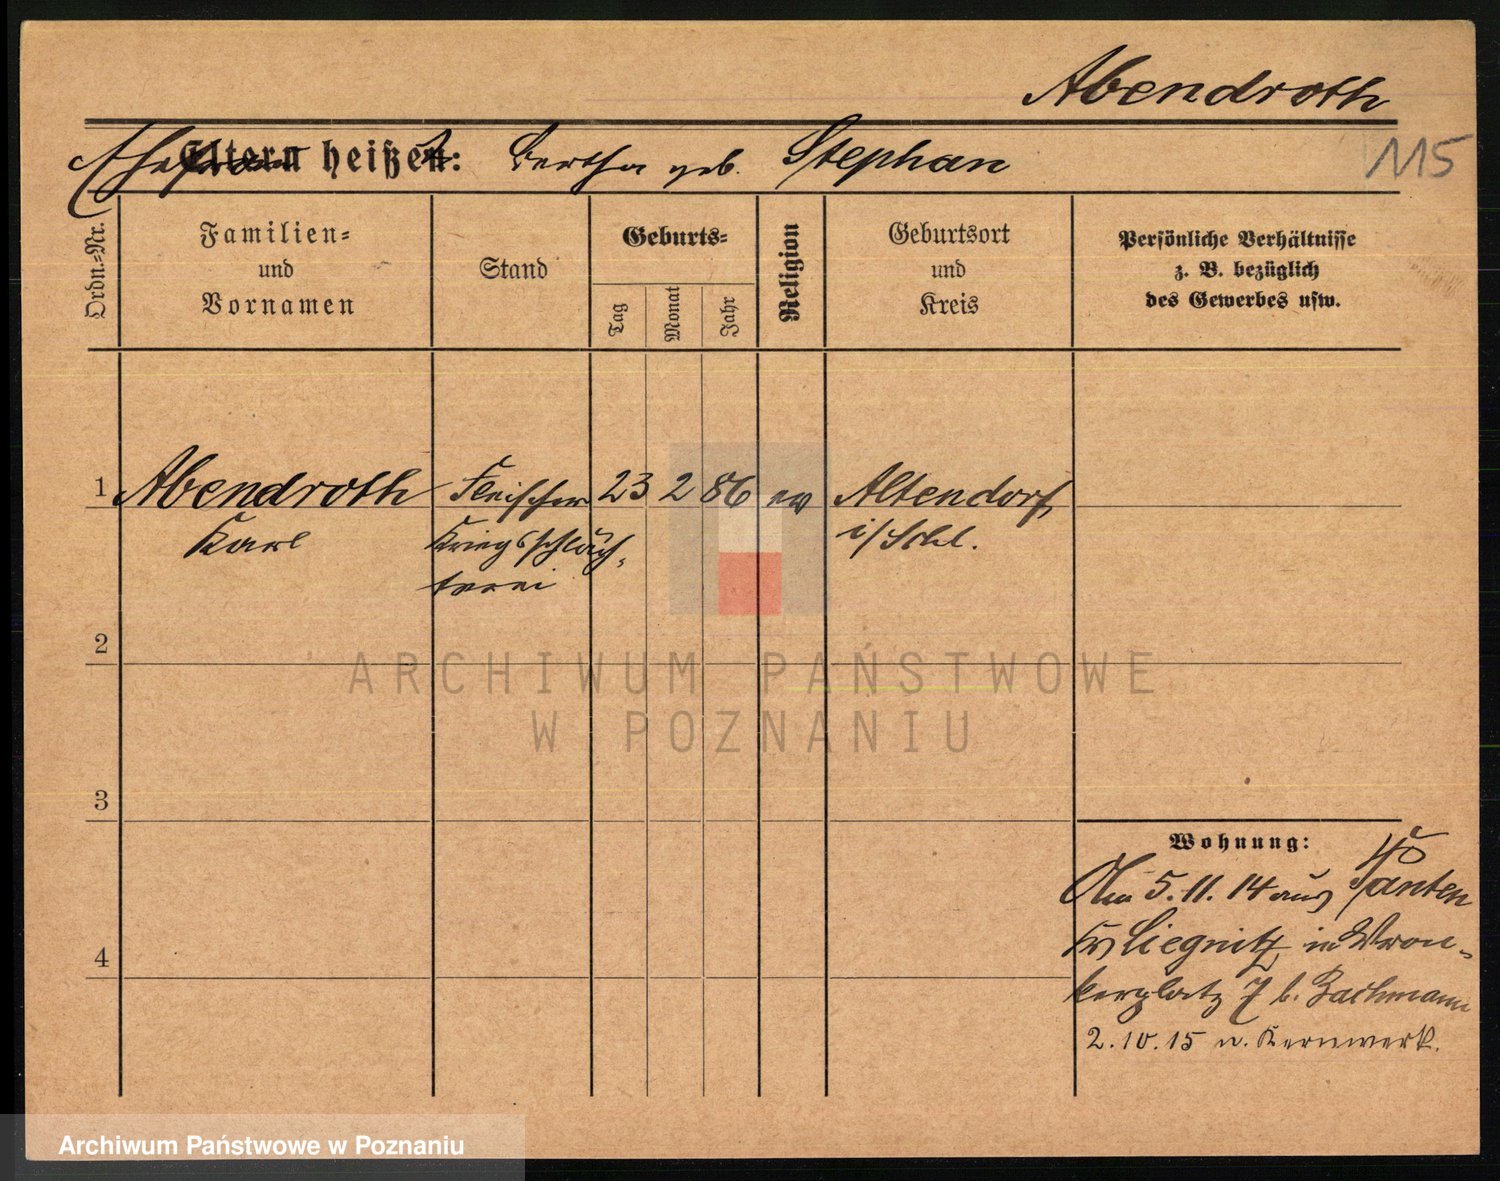 Abendroth
Ehefrau
Eltern heißen: Bertha geb. Stephan
115
Ordn.-Nr.
Familien-
und
Vornamen
Stand
Geburts-
Tag
Monat
Jahr
Religion
Geburtsort
und
Kreis
Persönliche Verhältnisse
z. B. bezüglich
des Gewerbes usw.
1 Abendroth Fleischer 23 2 86 ev Altendorf,
Karl Kriegsschläch- i/Schl.
terei
2
3
4
Wohnung:
Am 5.11.14 aus
Kr Liegnitz in Wron-
kerplatz 7 b. Bachmann
2.10.15 n. Kernwerk.
ARCHIWUM PAŃSTWOWE
W POZNANIU
Archiwum Państwowe w Poznaniu